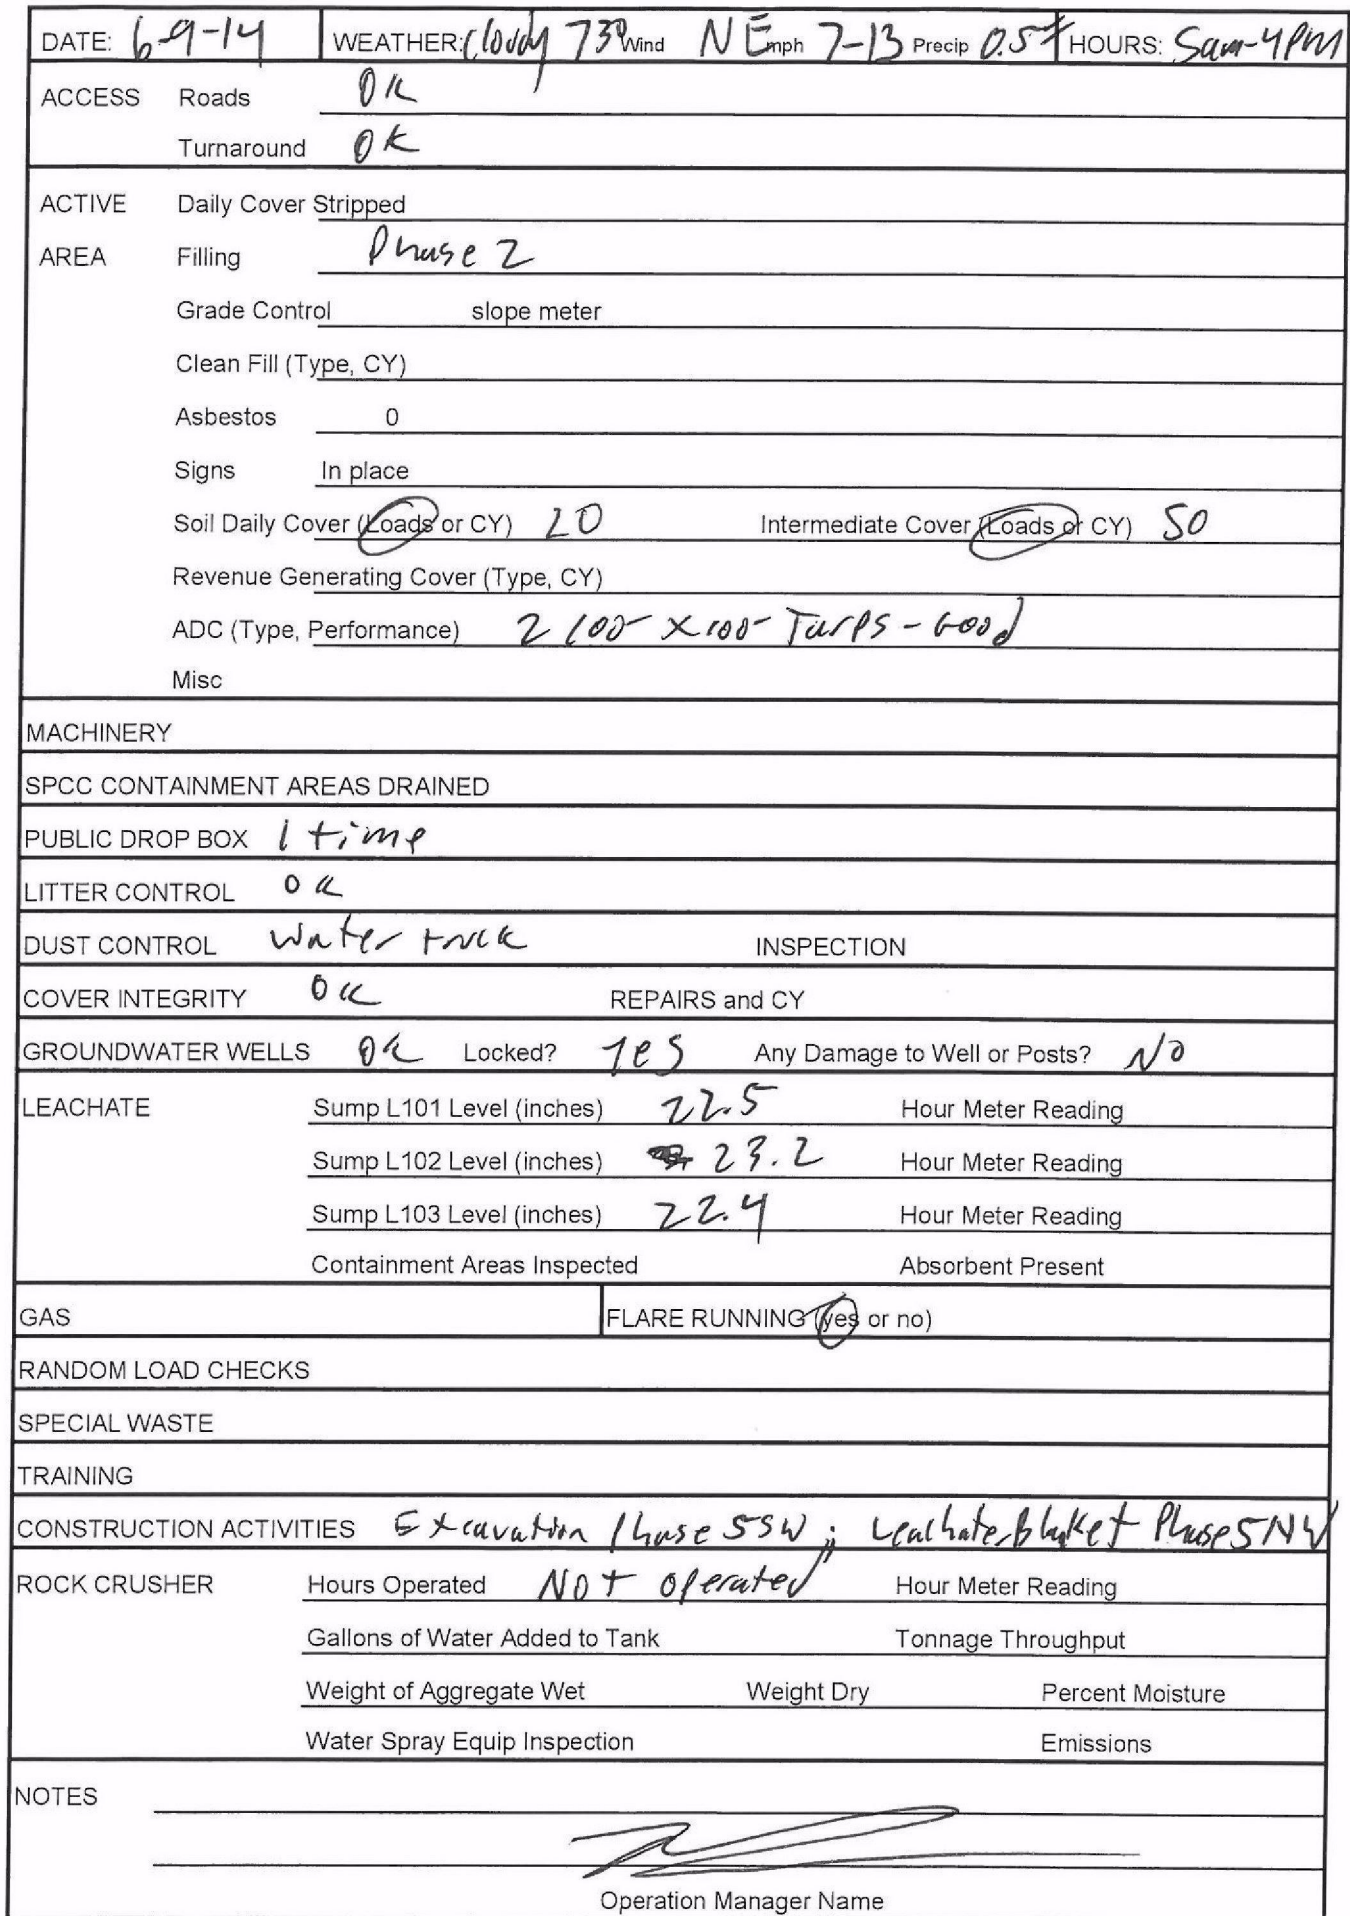 DATE: 6-9-14 WEATHER: Cloudy 73° Wind NE mph 7-13 Precip 0.5" HOURS: 5am-4PM
ACCESS Roads OK
Turnaround OK
ACTIVE Daily Cover Stripped
AREA Filling Phase 2
Grade Control slope meter
Clean Fill (Type, CY)
Asbestos 0
Signs In place
Soil Daily Cover (Loads or CY) 20 Intermediate Cover (Loads or CY) 50
Revenue Generating Cover (Type, CY)
ADC (Type, Performance) 2 100- x 100- Tarps - Good
Misc
MACHINERY
SPCC CONTAINMENT AREAS DRAINED
PUBLIC DROP BOX 1 time
LITTER CONTROL OK
DUST CONTROL Water truck INSPECTION
COVER INTEGRITY OK REPAIRS and CY
GROUNDWATER WELLS OK Locked? Yes Any Damage to Well or Posts? No
LEACHATE Sump L101 Level (inches) 22.5 Hour Meter Reading
Sump L102 Level (inches) 23.2 Hour Meter Reading
Sump L103 Level (inches) 22.4 Hour Meter Reading
Containment Areas Inspected Absorbent Present
GAS FLARE RUNNING (yes or no)
RANDOM LOAD CHECKS
SPECIAL WASTE
TRAINING
CONSTRUCTION ACTIVITIES Excavation Phase 5SW; Leachate Blanket Phase 5NW
ROCK CRUSHER Hours Operated Not operated Hour Meter Reading
Gallons of Water Added to Tank Tonnage Throughput
Weight of Aggregate Wet Weight Dry Percent Moisture
Water Spray Equip Inspection Emissions
NOTES
Operation Manager Name